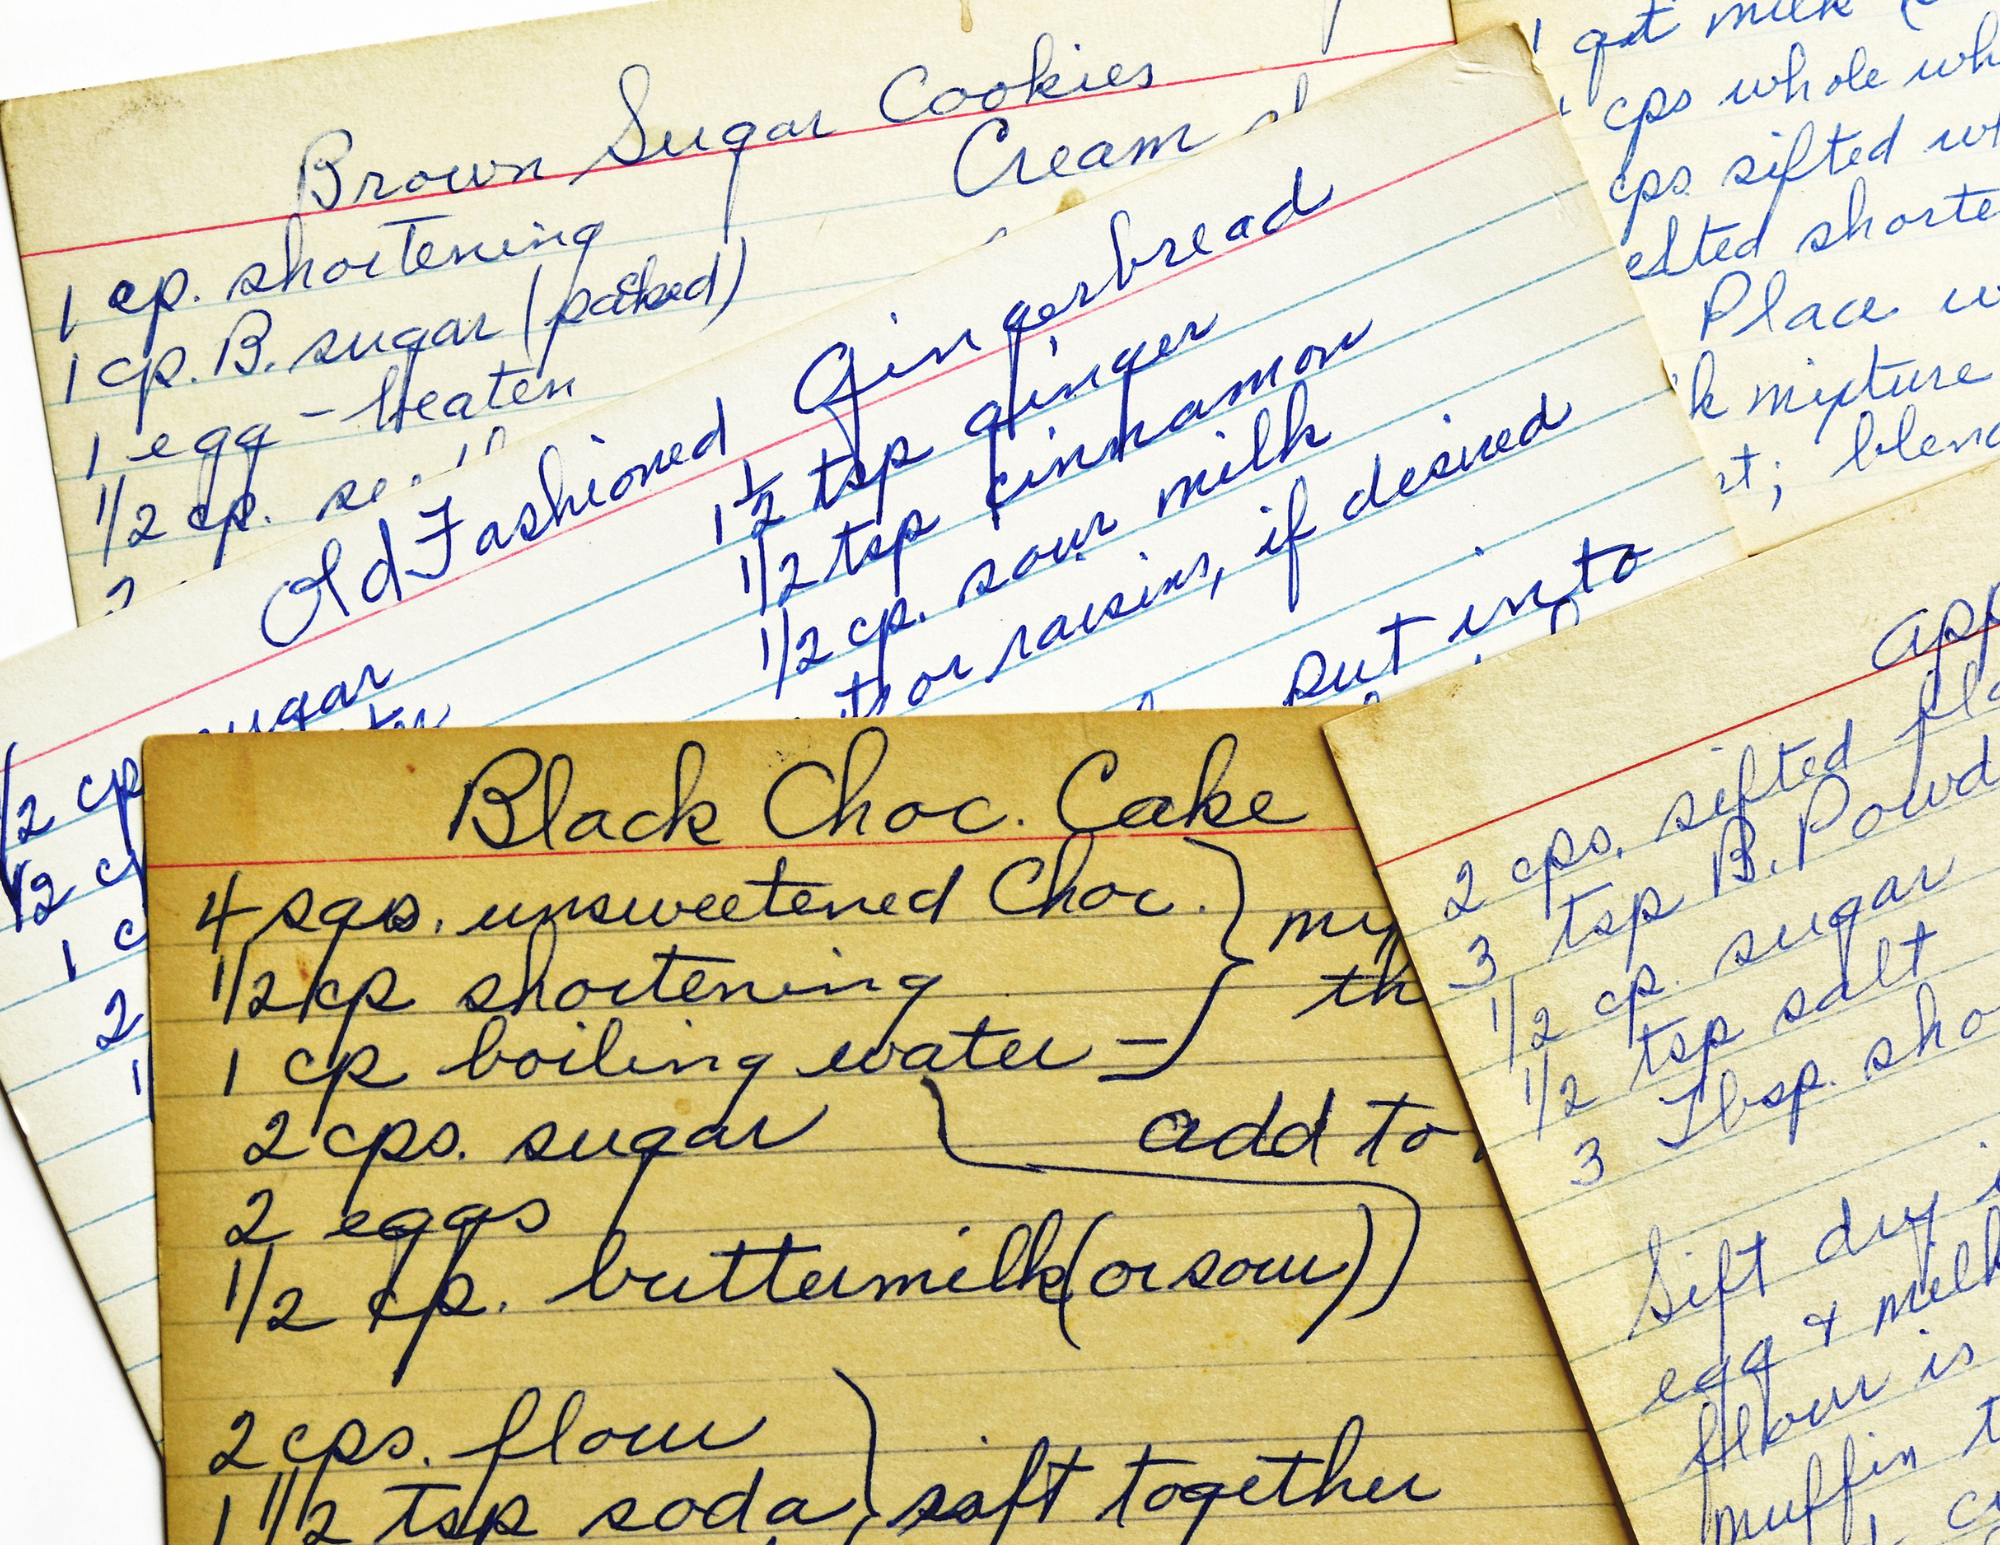 Brown Sugar Cookies
1 cp. shortening
Cream
1 cp. B. sugar (packed)
1 egg - beaten
1/2 cp.
1 qt milk
cps whole
cps sifted
shorte
Place
mixture
; blend
Old Fashioned Gingerbread
1 1/2 tsp ginger
1/2 tsp cinnamon
1/2 cp. sour milk
or raisins, if desired
put into
sugar
1/2 cp
1/2 c
1 c
2
1
Black Choc. Cake
4 sqs. unsweetened Choc.
1/2 cp shortening
1 cp boiling water -
2 cps. sugar
add to
2 eggs
1/2 cp. buttermilk (or sour)
2 cps. flour
1 1/2 tsp soda, sift together
app
2 cps. sifted fl
3 tsp B. Powd
1/2 cp. sugar
1/2 tsp salt
3 Tbsp. sho
Sift dry i
egg & milk
flour is
muffin t